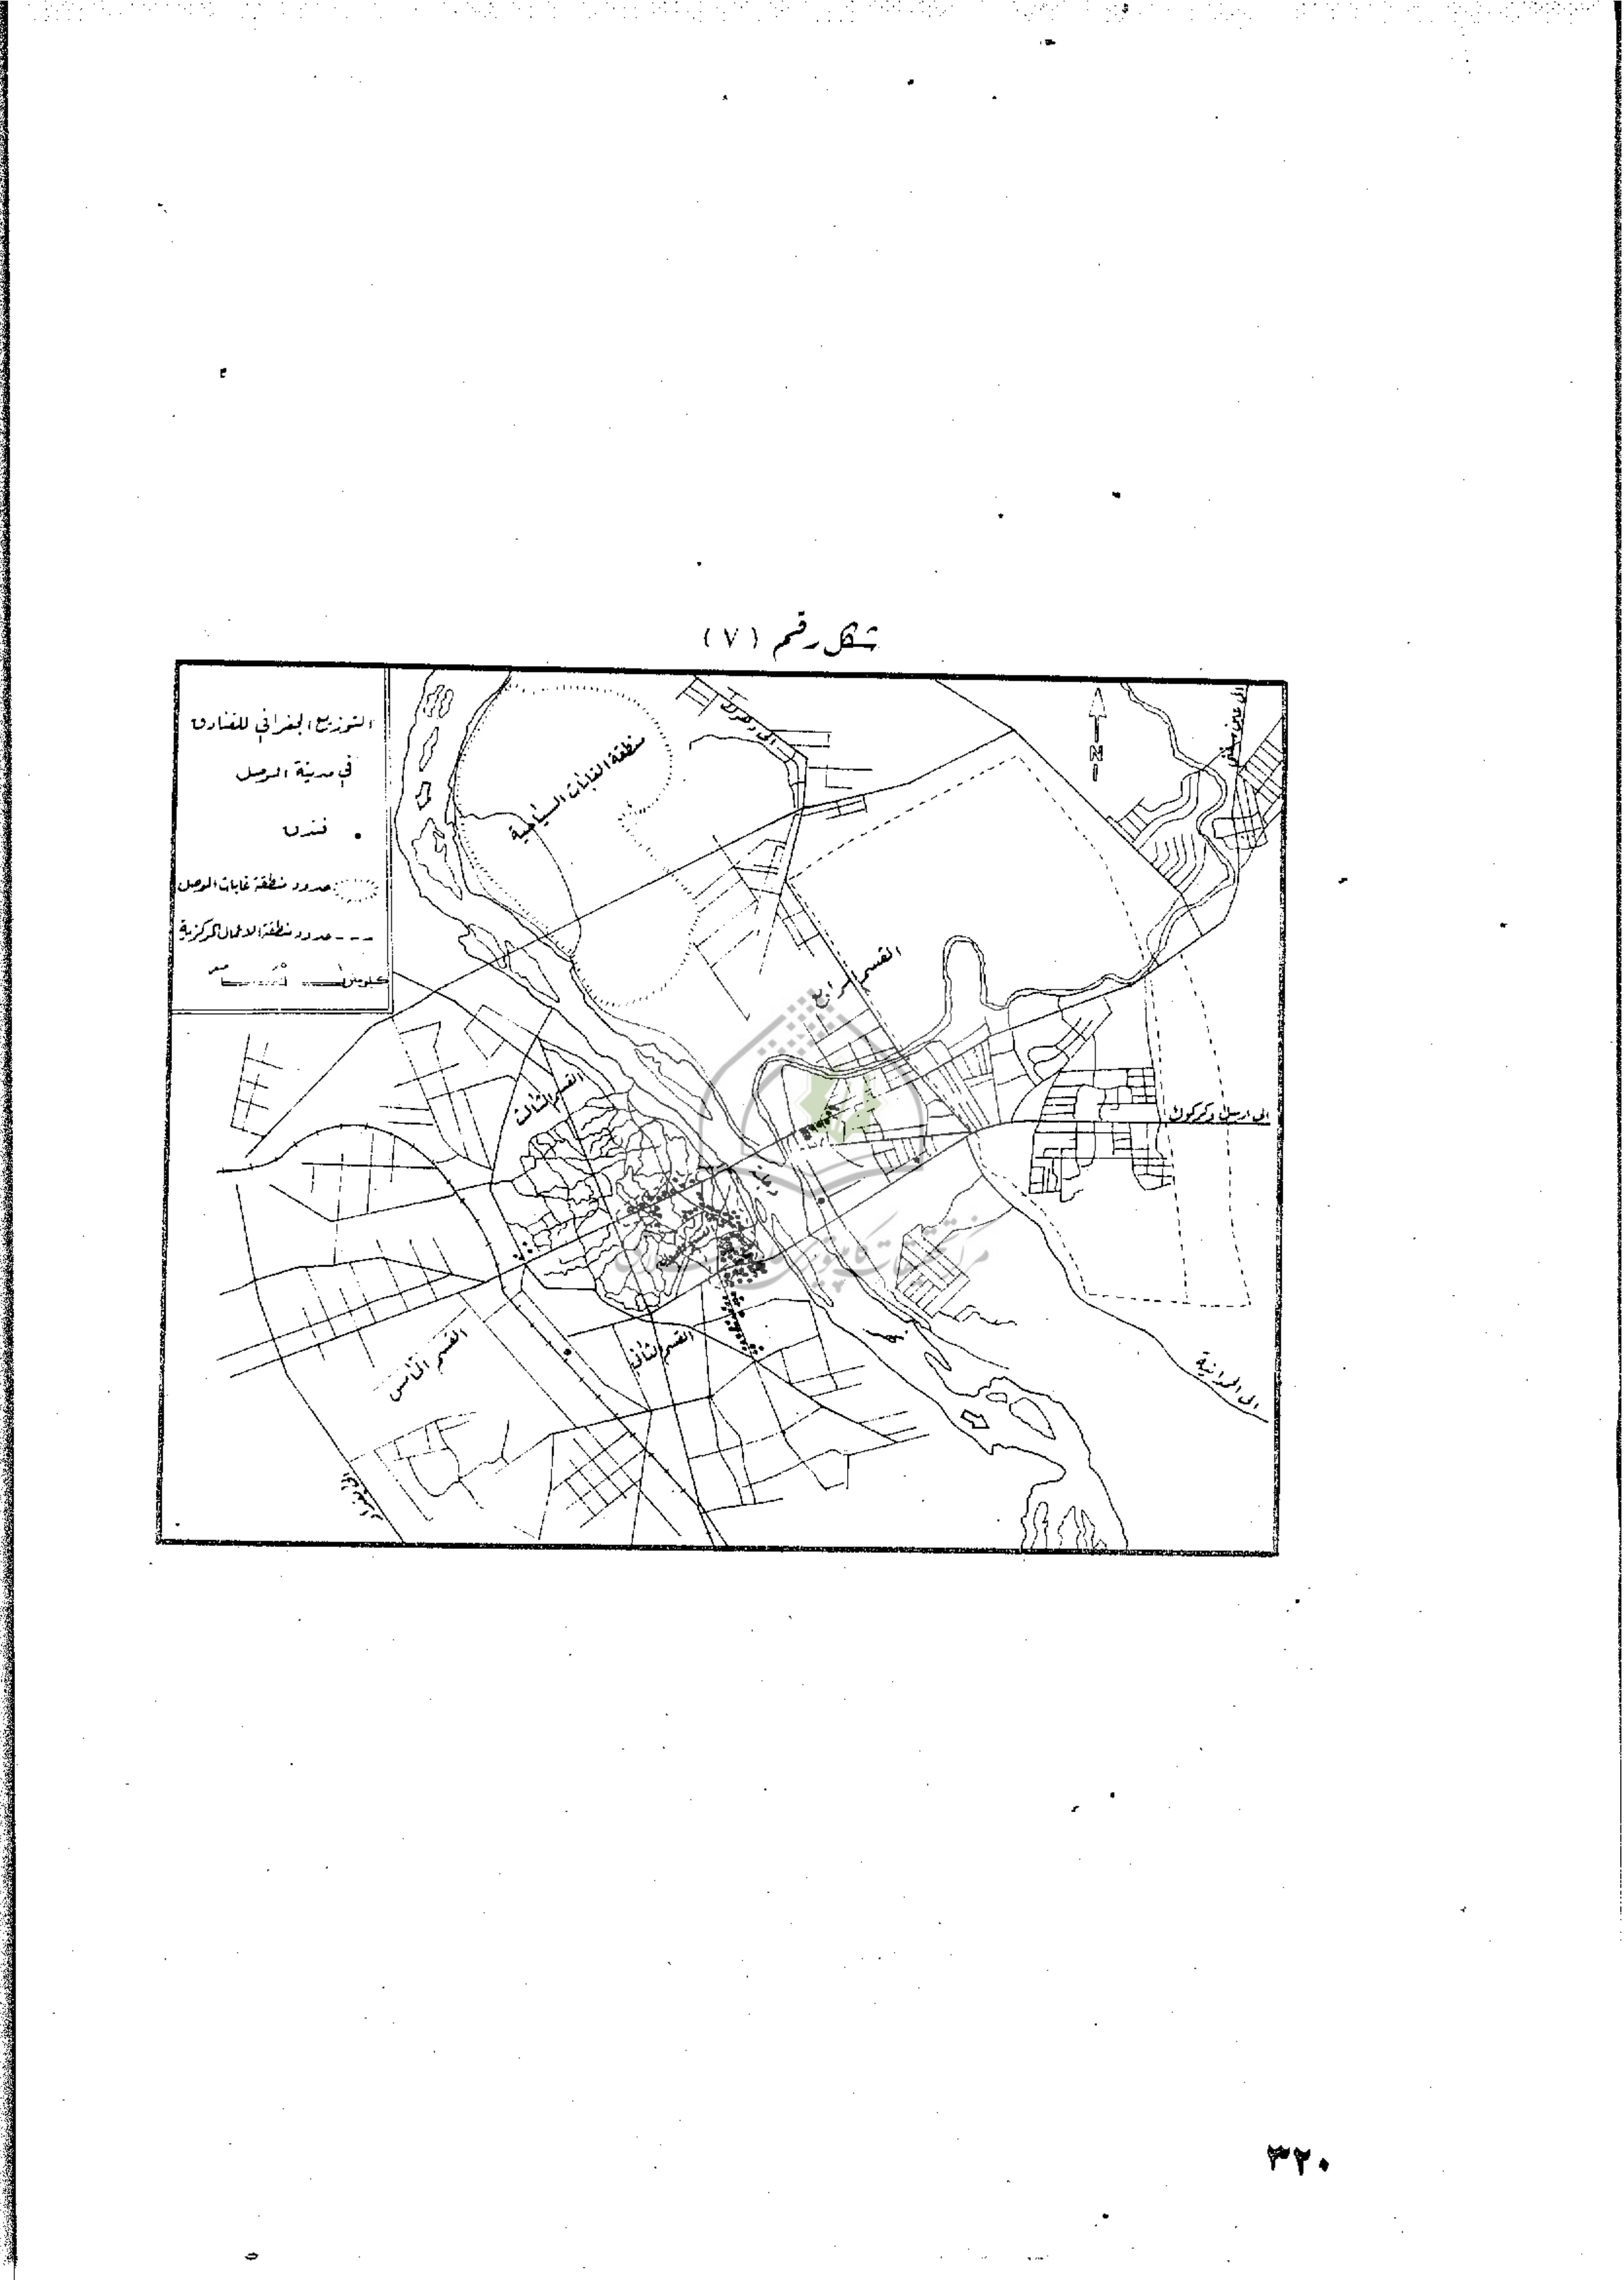 شكل رقم (٧)
التوزيع الجغرافي للفنادق
في مدينة الموصل
فندق
حدود منطقة غابات الموصل
حدود منطقة الاعمال المركزية
كيلومتر
منطقة الغابات السياحية
الى دهوك
N
القسم الرابع
القسم الثالث
الى اربيل وكركوك
القسم الثاني
القسم الخامس
الى الحمدانية
٣٢٠